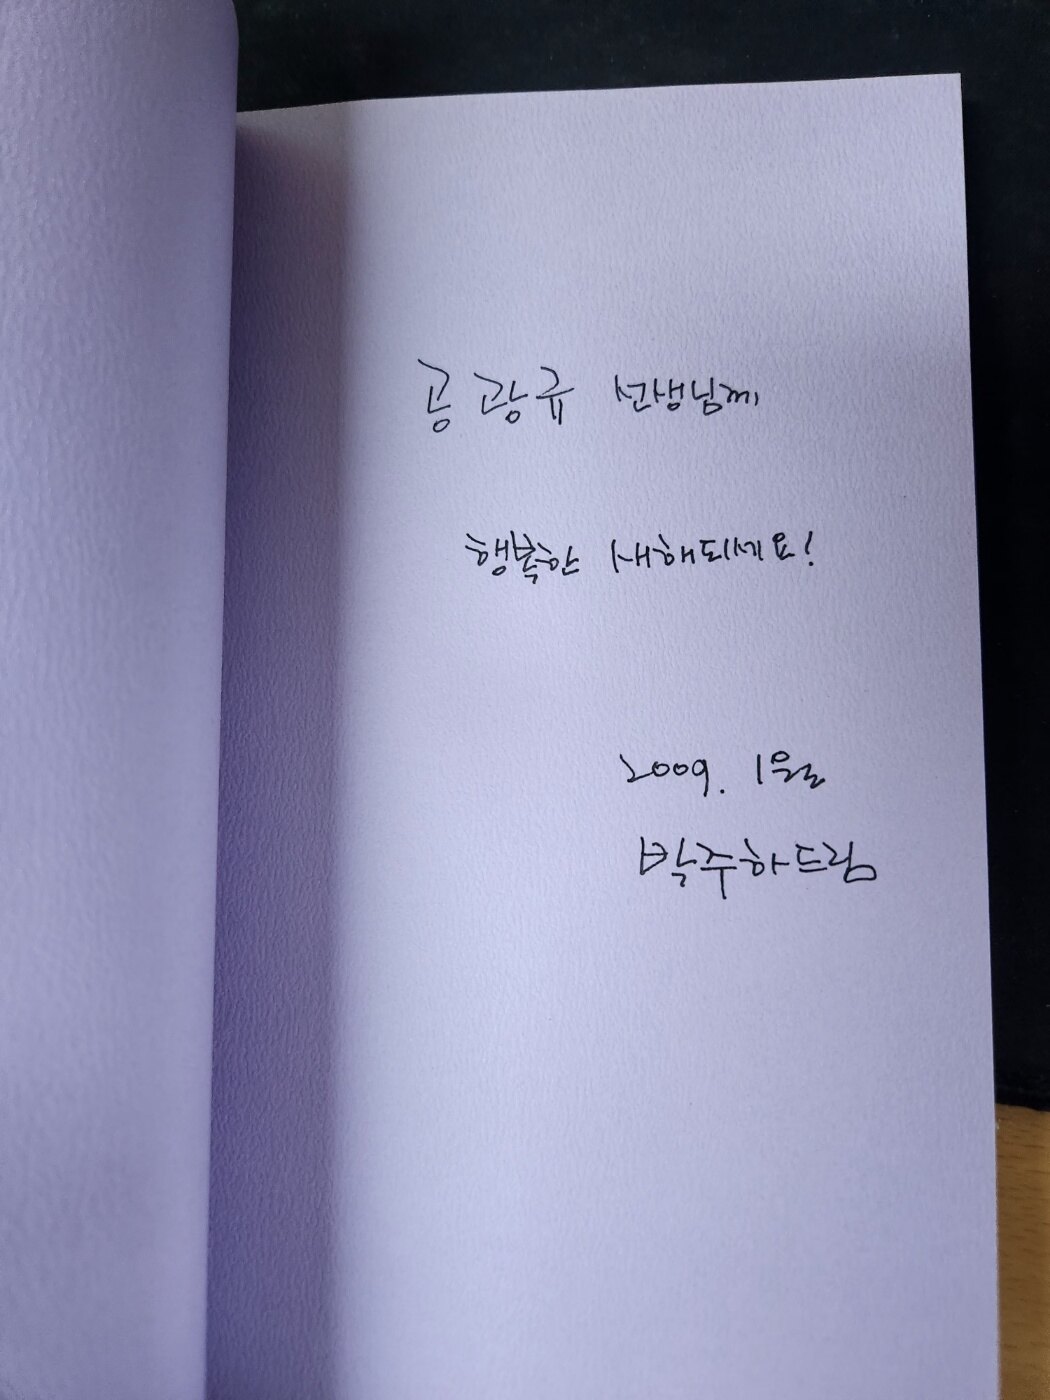 공광규 선생님께
행복한 새해되세요!
2009. 1월
박주하드림